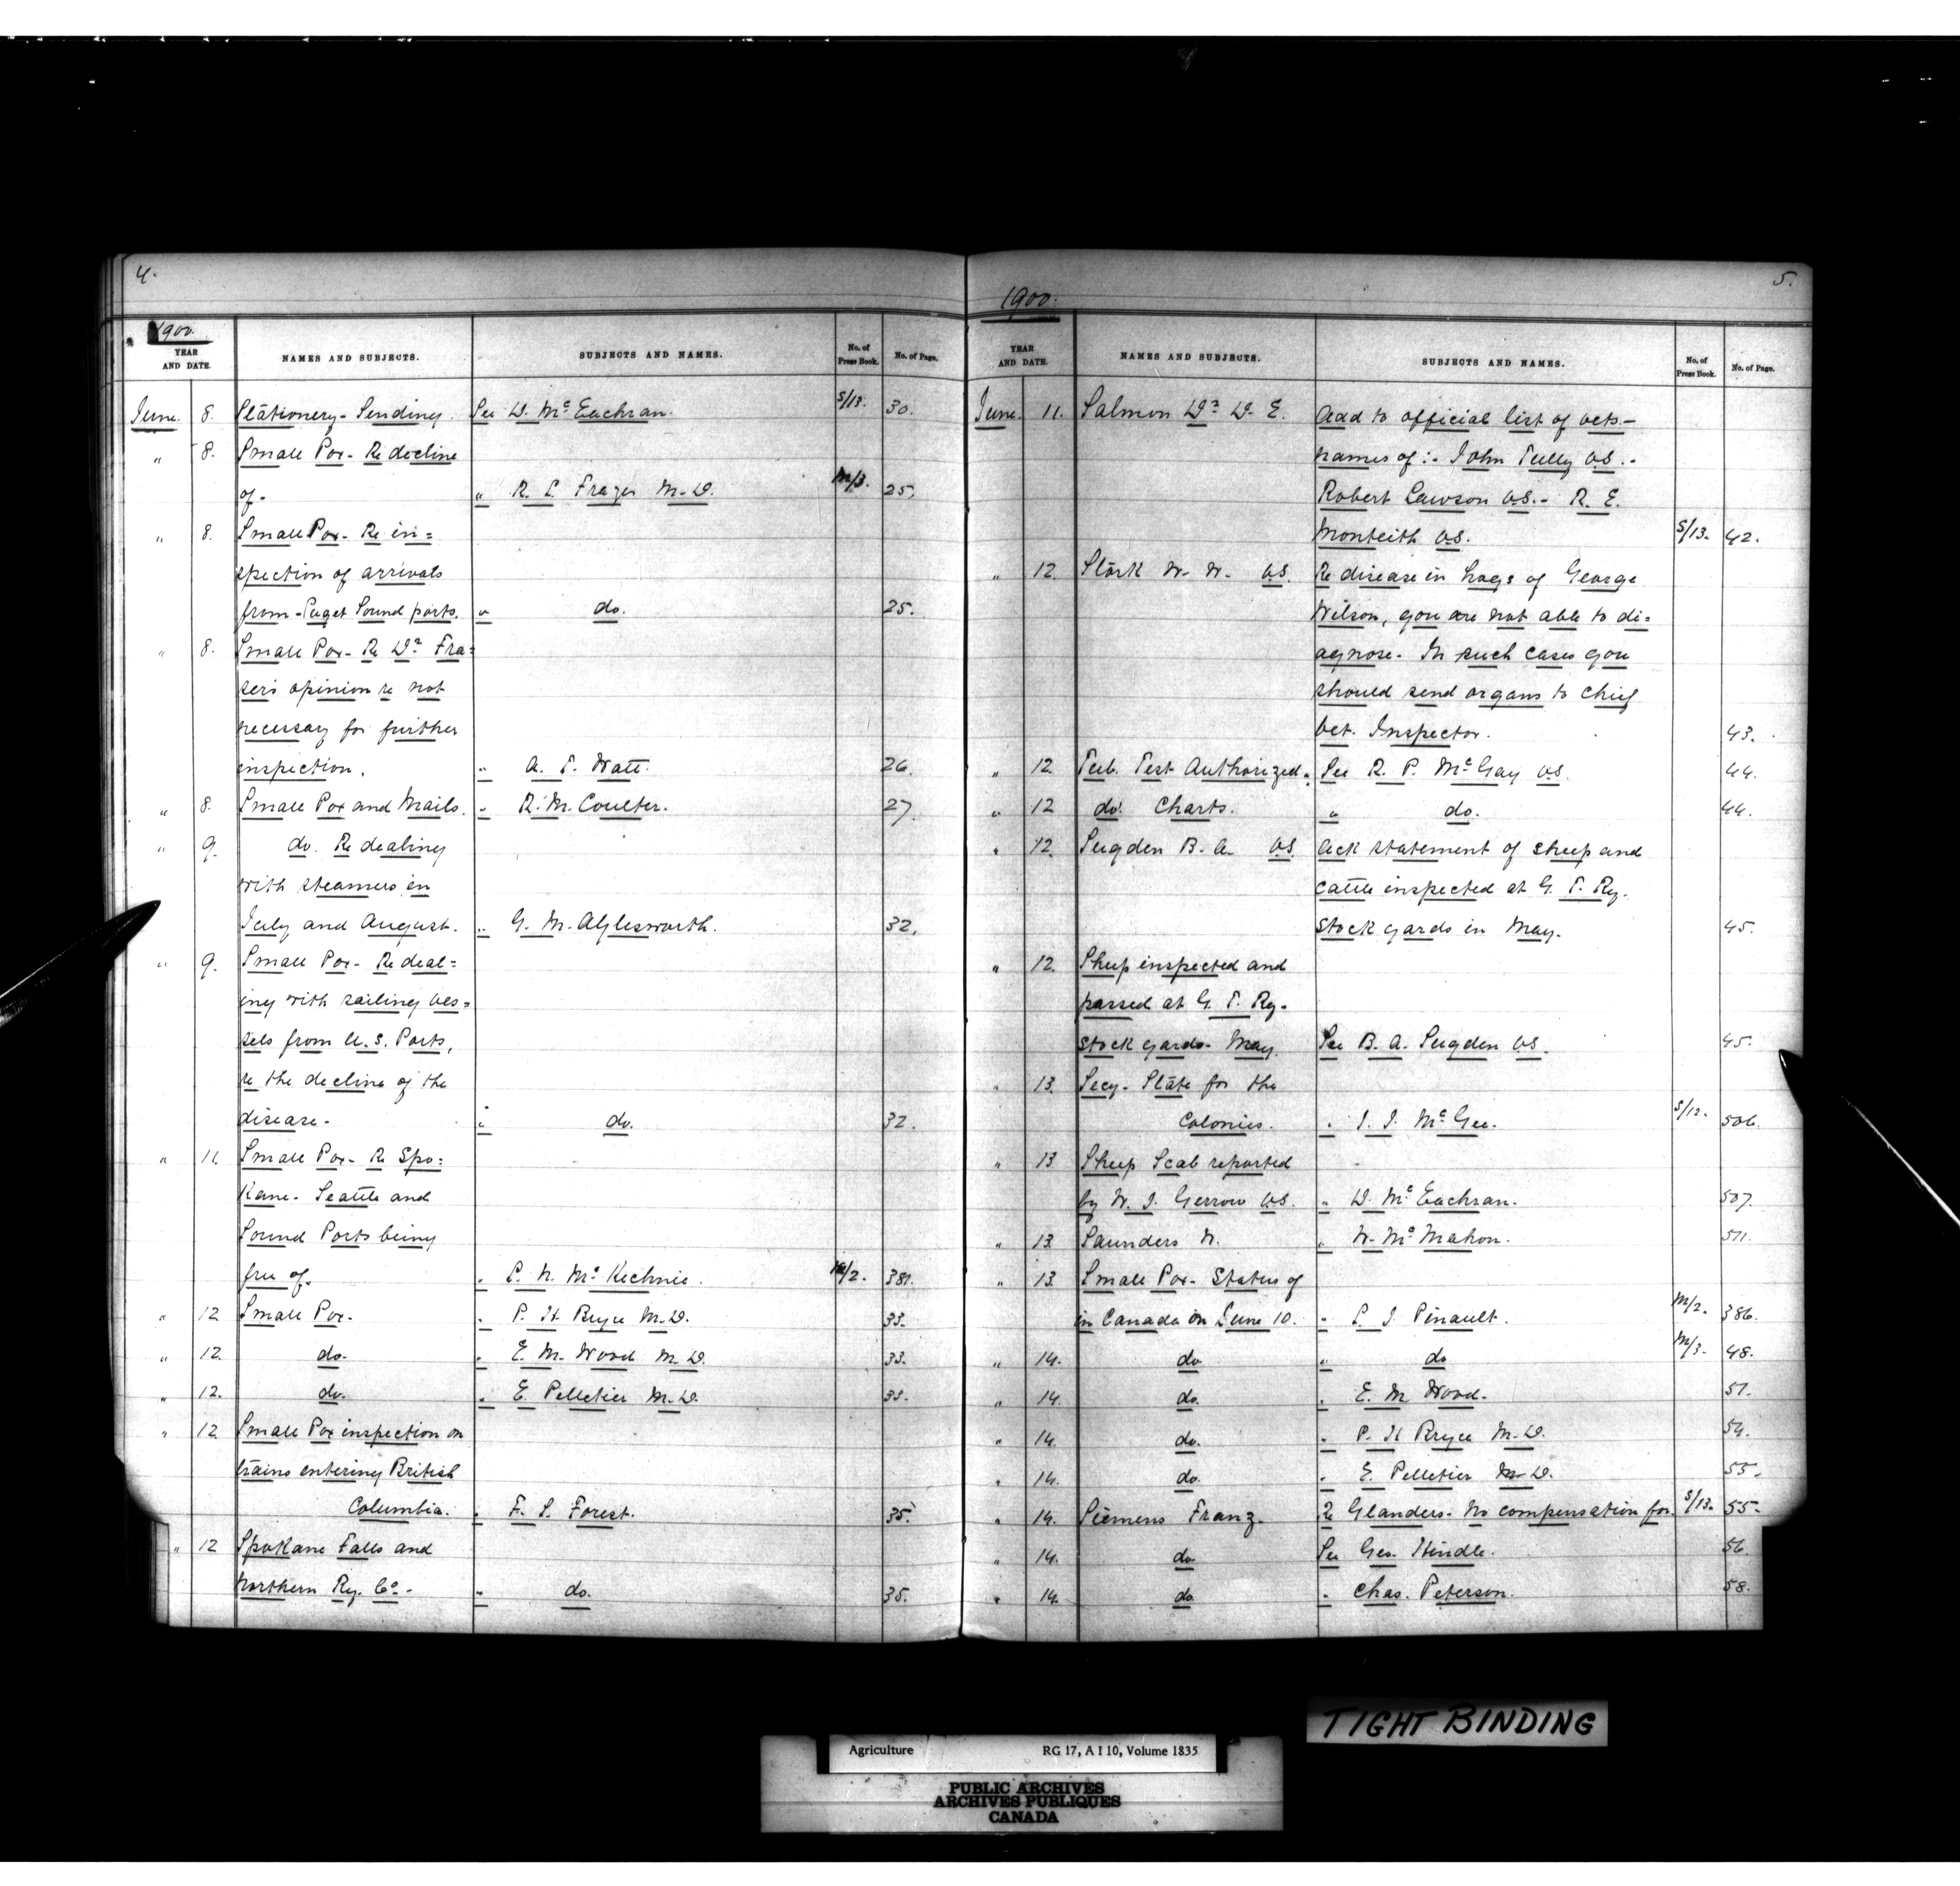 4.
1900.
YEAR AND DATE. NAMES AND SUBJECTS. SUBJECTS AND NAMES. No. of Press Book. No. of Page.
June. 8. Stationery - Sending. See D. McEachran. S/13. 30.
" 8. Small Pox - Re decline
of. " R. L. Frazer M.D. M/3. 25.
" 8. Small Pox - Re in=
spection of arrivals
from - Puget Sound ports. " do. 25.
" 8. Small Pox - Re Dr Fra=
ser's opinion re not
necessary for further
inspection. " A. T. Watt. 26.
" 8. Small Pox and Mails. " R. M. Coulter. 27.
" 9. do. Re dealing
with steamers in
July and August. " G. M. Aylesworth. 32.
" 9. Small Pox - Re deal=
ing with sailing ves=
sels from U.S. Ports,
re the decline of the
disease - " do. 32.
" 11. Small Pox - Re Spo=
kane - Seattle and
Sound Ports being
free of. " L. N. McKechnie. M/2. 381.
" 12. Small Pox - " P. H Bryce M.D. 33.
" 12. do. " E. M. Wood M.D. 33.
" 12. do. " E. Pelletier M.D. 33.
" 12. Small Pox inspection on
trains entering British
Columbia. " F. S. Forest. 35.
" 12 Spokane Falls and
Northern Ry. Co. - " do. 35.
5.
1900.
YEAR AND DATE. NAMES AND SUBJECTS. SUBJECTS AND NAMES. No. of Press Book. No. of Page.
June. 11. Salmon Dr D. E. Add to official list of vets -
names of :- John Tully V.S. -
Robert Lawson V.S. - R. E.
Monteith V.S. S/13. 42.
" 12. Stork W. W. V.S. Re disease in hogs of George
Wilson, you are not able to di=
agnose. In such cases you
should send organs to Chief
Vet. Inspector. 43.
" 12. Tub. Test Authorized. See R. P. McGay V.S. 44.
" 12 do. Charts. " do. 44.
" 12. Sugden B. A. V.S. Ack statement of sheep and
cattle inspected at G. T. Ry.
stock yards in May. 45.
" 12. Sheep inspected and
passed at G. T. Ry.
stock yards - May. See B. A. Sugden V.S. 45.
" 13. Secy. State for the
Colonies. " J. J. McGee. S/12. 506.
" 13 Sheep Scab reported
by W. J. Gerrow V.S. " D. McEachran. 507.
" 13. Saunders W. " W. McMahon. 511.
" 13. Small Pox - Status of
in Canada on June 10. " L. J. Pinault. M/2. 386.
" 14. do " do M/3. 48.
" 14. do. " E. M Wood. 51.
" 14. do. " P. H Bryce M.D. 54.
" 14. do. " E. Pelletier M.D. 55.
" 14. Siemens Franz. Re Glanders. No compensation for. S/13. 55.
" 14. do See Geo. Hindle. 56.
" 14. do " Chas. Peterson. 58.
TIGHT BINDING
Agriculture RG 17, A I 10, Volume 1835
PUBLIC ARCHIVES
ARCHIVES PUBLIQUES
CANADA